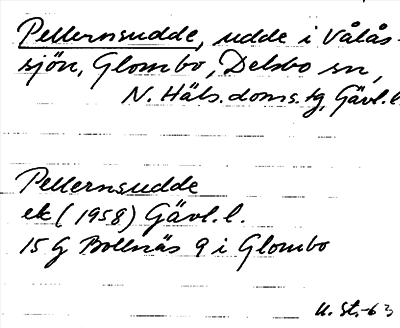 Pellernsudde, udde i Vålås-
sjön, Glombo, Delsbo sn,
N. Häls. doms. tg, Gävl. l.
Pellernsudde
ek (1958) Gävl. l.
15 G Bollnäs 9 i Glombo
U. St. -63